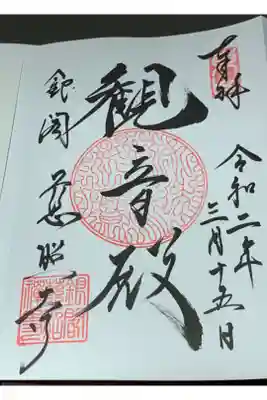 奉拝
令和二年
三月十五日
観音殿
銀閣 慈照寺